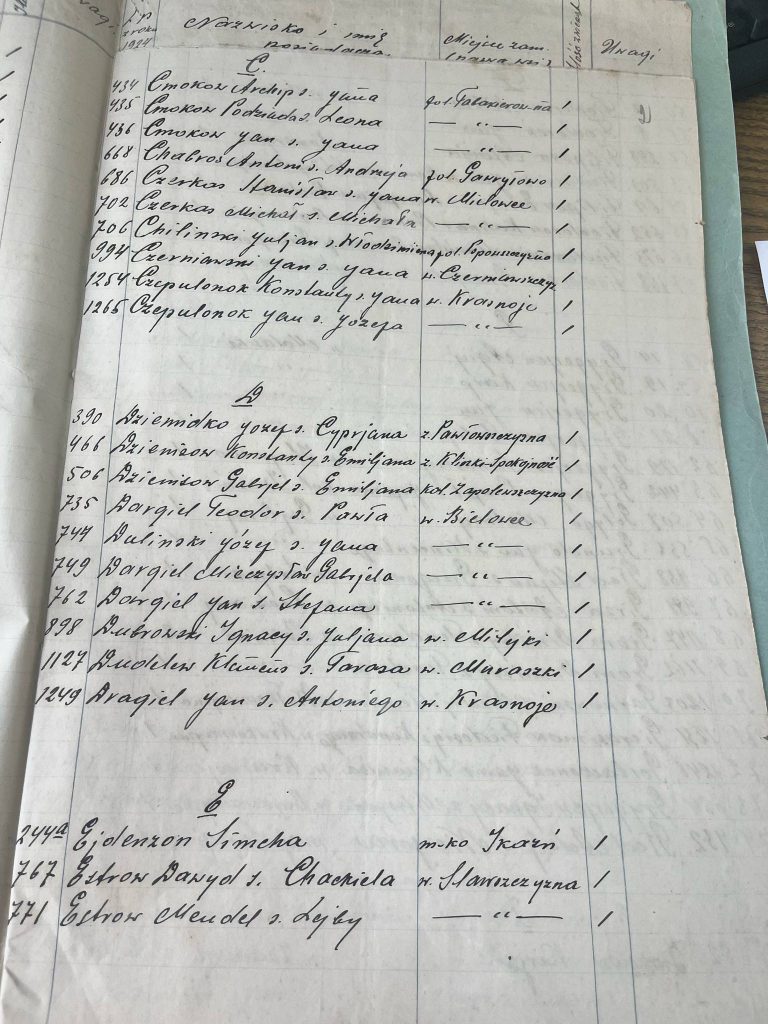 L.p. z roku 1924 Nazwisko i imię posiadacza. Miejsce zam. (nazwa wsi) Ilość Uwagi
C.
434 Cmokow Archip s. Jana fol. /
435 Cmokow Podziada s. Leona — " — /
436 Cmokow Jan s. Jana — " — /
668 Chabros Antoni s. Andrzeja fol. Gawryłowo /
686 Czerkas Stanisław s. Jana w. Mielowce /
702 Czerkas Michał s. Michała — " — /
706 Chilinski Juljan s. Włodzimierza fol. /
994 Czerniawski Jan s. Jana w. /
1254 Czepulonok Konstanty s. Jana w. Krasnoje /
1265 Czepulonok Jan s. Józefa — " — /
D
390 Dziemidko Józef s. Cyprjana z. Pawłowszczyzna /
466 Dziemsow Konstanty s. Emiljana z. Klinki-Spokojność /
506 Dziemsow Gabrjel s. Emiljana kol. Zapolewszczyzna /
735 Dargiel Teodor s. Pawła w. Bielowce /
744 Dulinski Józef s. Jana — " — /
749 Dargiel Mieczysław Gabrjela — " — /
762 Dargiel Jan s. Stefana — " — /
898 Dubrowski Ignacy s. Juljana w. Milejki /
1127 Dudelew Klemens s. Tarasa w. Muraszki /
1249 Dragiel Jan s. Antoniego w. Krasnoje /
E
244a Ejdenzon Simcha m-ko Ikaźń /
767 Estrow Dawyd s. Chackiela w. Stawszczyzna /
771 Estrow Mendel s. Lejby — " — /